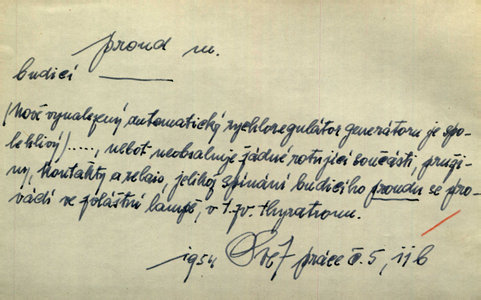 proud m.
budicí ———
(Nově vynalezený automatický rychloregulátor generátoru je spo-
lehlivý)....., neboť neobsahuje žádné rotující součásti, pruži-
ny, kontakty a relais, jelikož spínání budicího proudu se pro-
vádí ve zvláštní lampě, v t. zv. thyratronu.
1954 Svět práce č. 5, 11b